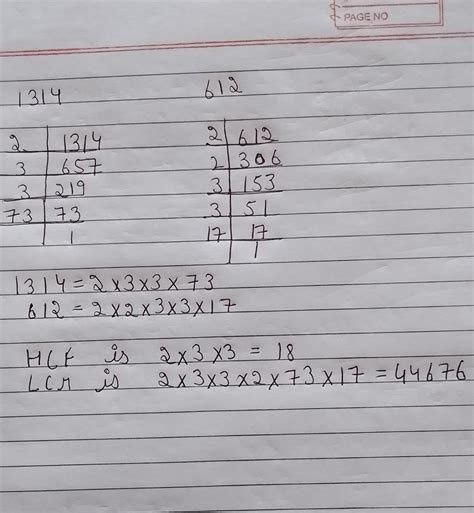 PAGE NO
1314 612
2 | 1314 2 | 612
3 | 657 2 | 306
3 | 219 3 | 153
73 | 73 3 | 51
1 17 | 17
1
1314 = 2×3×3×73
612 = 2×2×3×3×17
HCF is 2×3×3 = 18
LCM is 2×3×3×2×73×17 = 44676